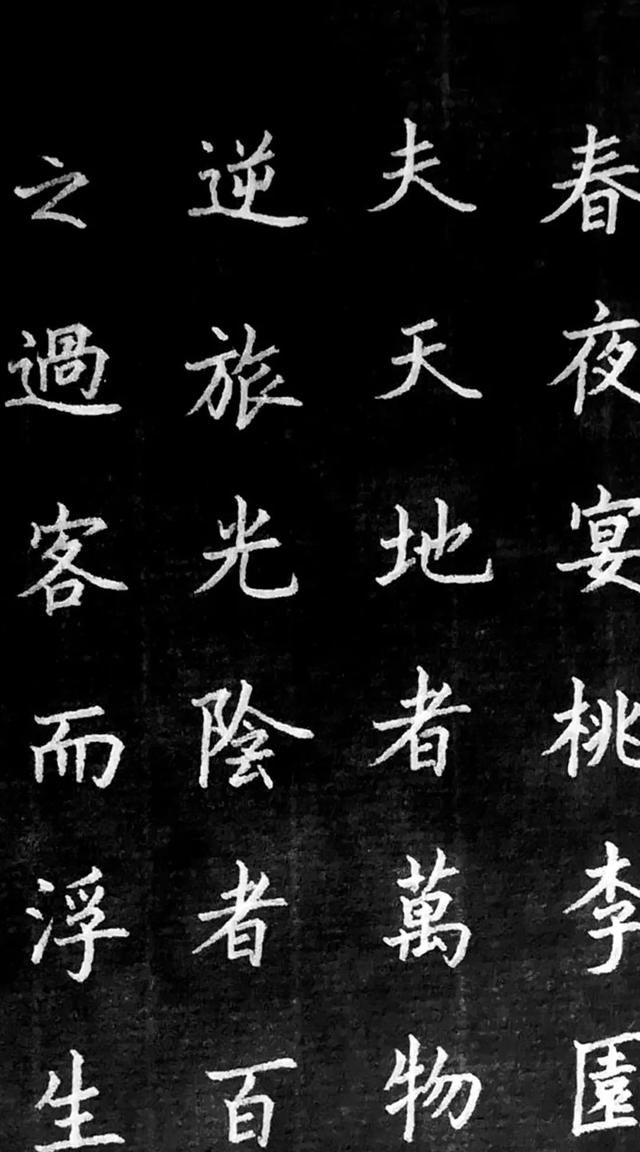 春夜宴桃李園
夫天地者萬物
逆旅光陰者百
之過客而浮生